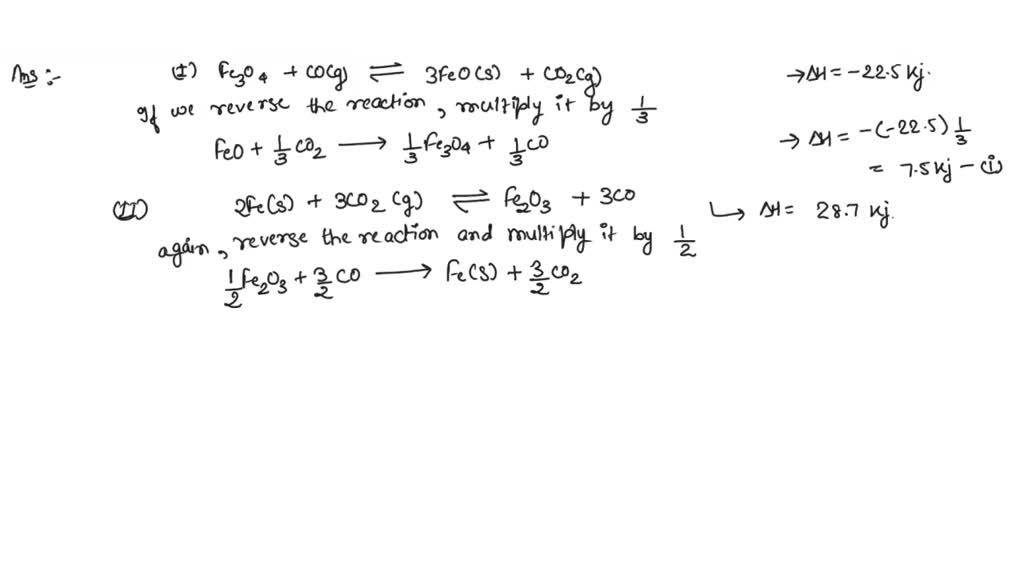 Ans:- (I) Fe₃O₄ + CO(g) ⇌ 3FeO(s) + CO₂(g) → ΔH = -22.5 kj.
If we reverse the reaction, multiply it by 1/3
FeO + 1/3 CO₂ → 1/3 Fe₃O₄ + 1/3 CO → ΔH = -(-22.5) 1/3
= 7.5 kj - (i)
(II) 2Fe(s) + 3CO₂(g) ⇌ Fe₂O₃ + 3CO ↳ ΔH = 28.7 kj.
again, reverse the reaction and multiply it by 1/2
1/2 Fe₂O₃ + 3/2 CO → Fe(s) + 3/2 CO₂